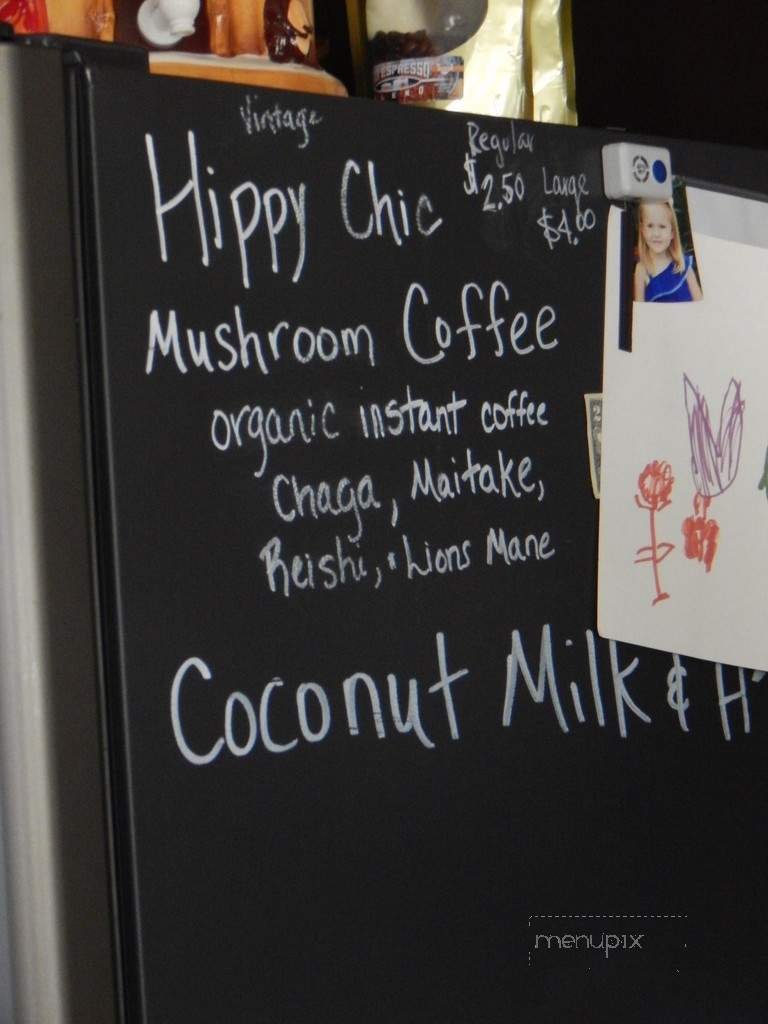 ESPRESSO
Vintage
Hippy Chic
Regular
$2.50
Large
$4.00
Mushroom Coffee
organic instant coffee
Chaga, Maitake,
Reishi, & Lions Mane
Coconut Milk & H
menupix